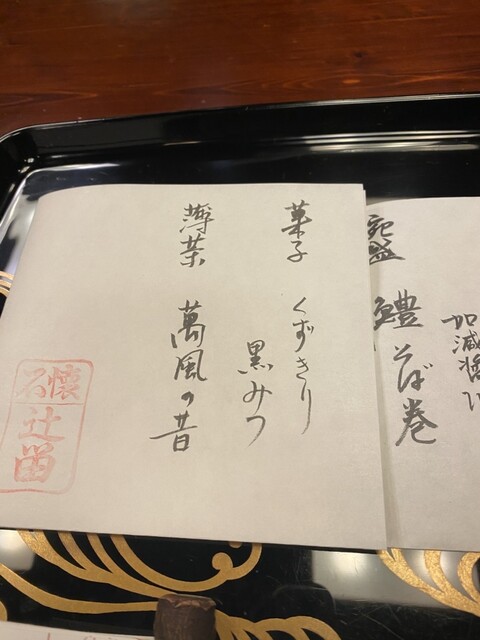 加減醬
椀盛
鱧そば巻
菓子 くずきり
黒みつ
薄茶 萬風の昔
懐石
辻留